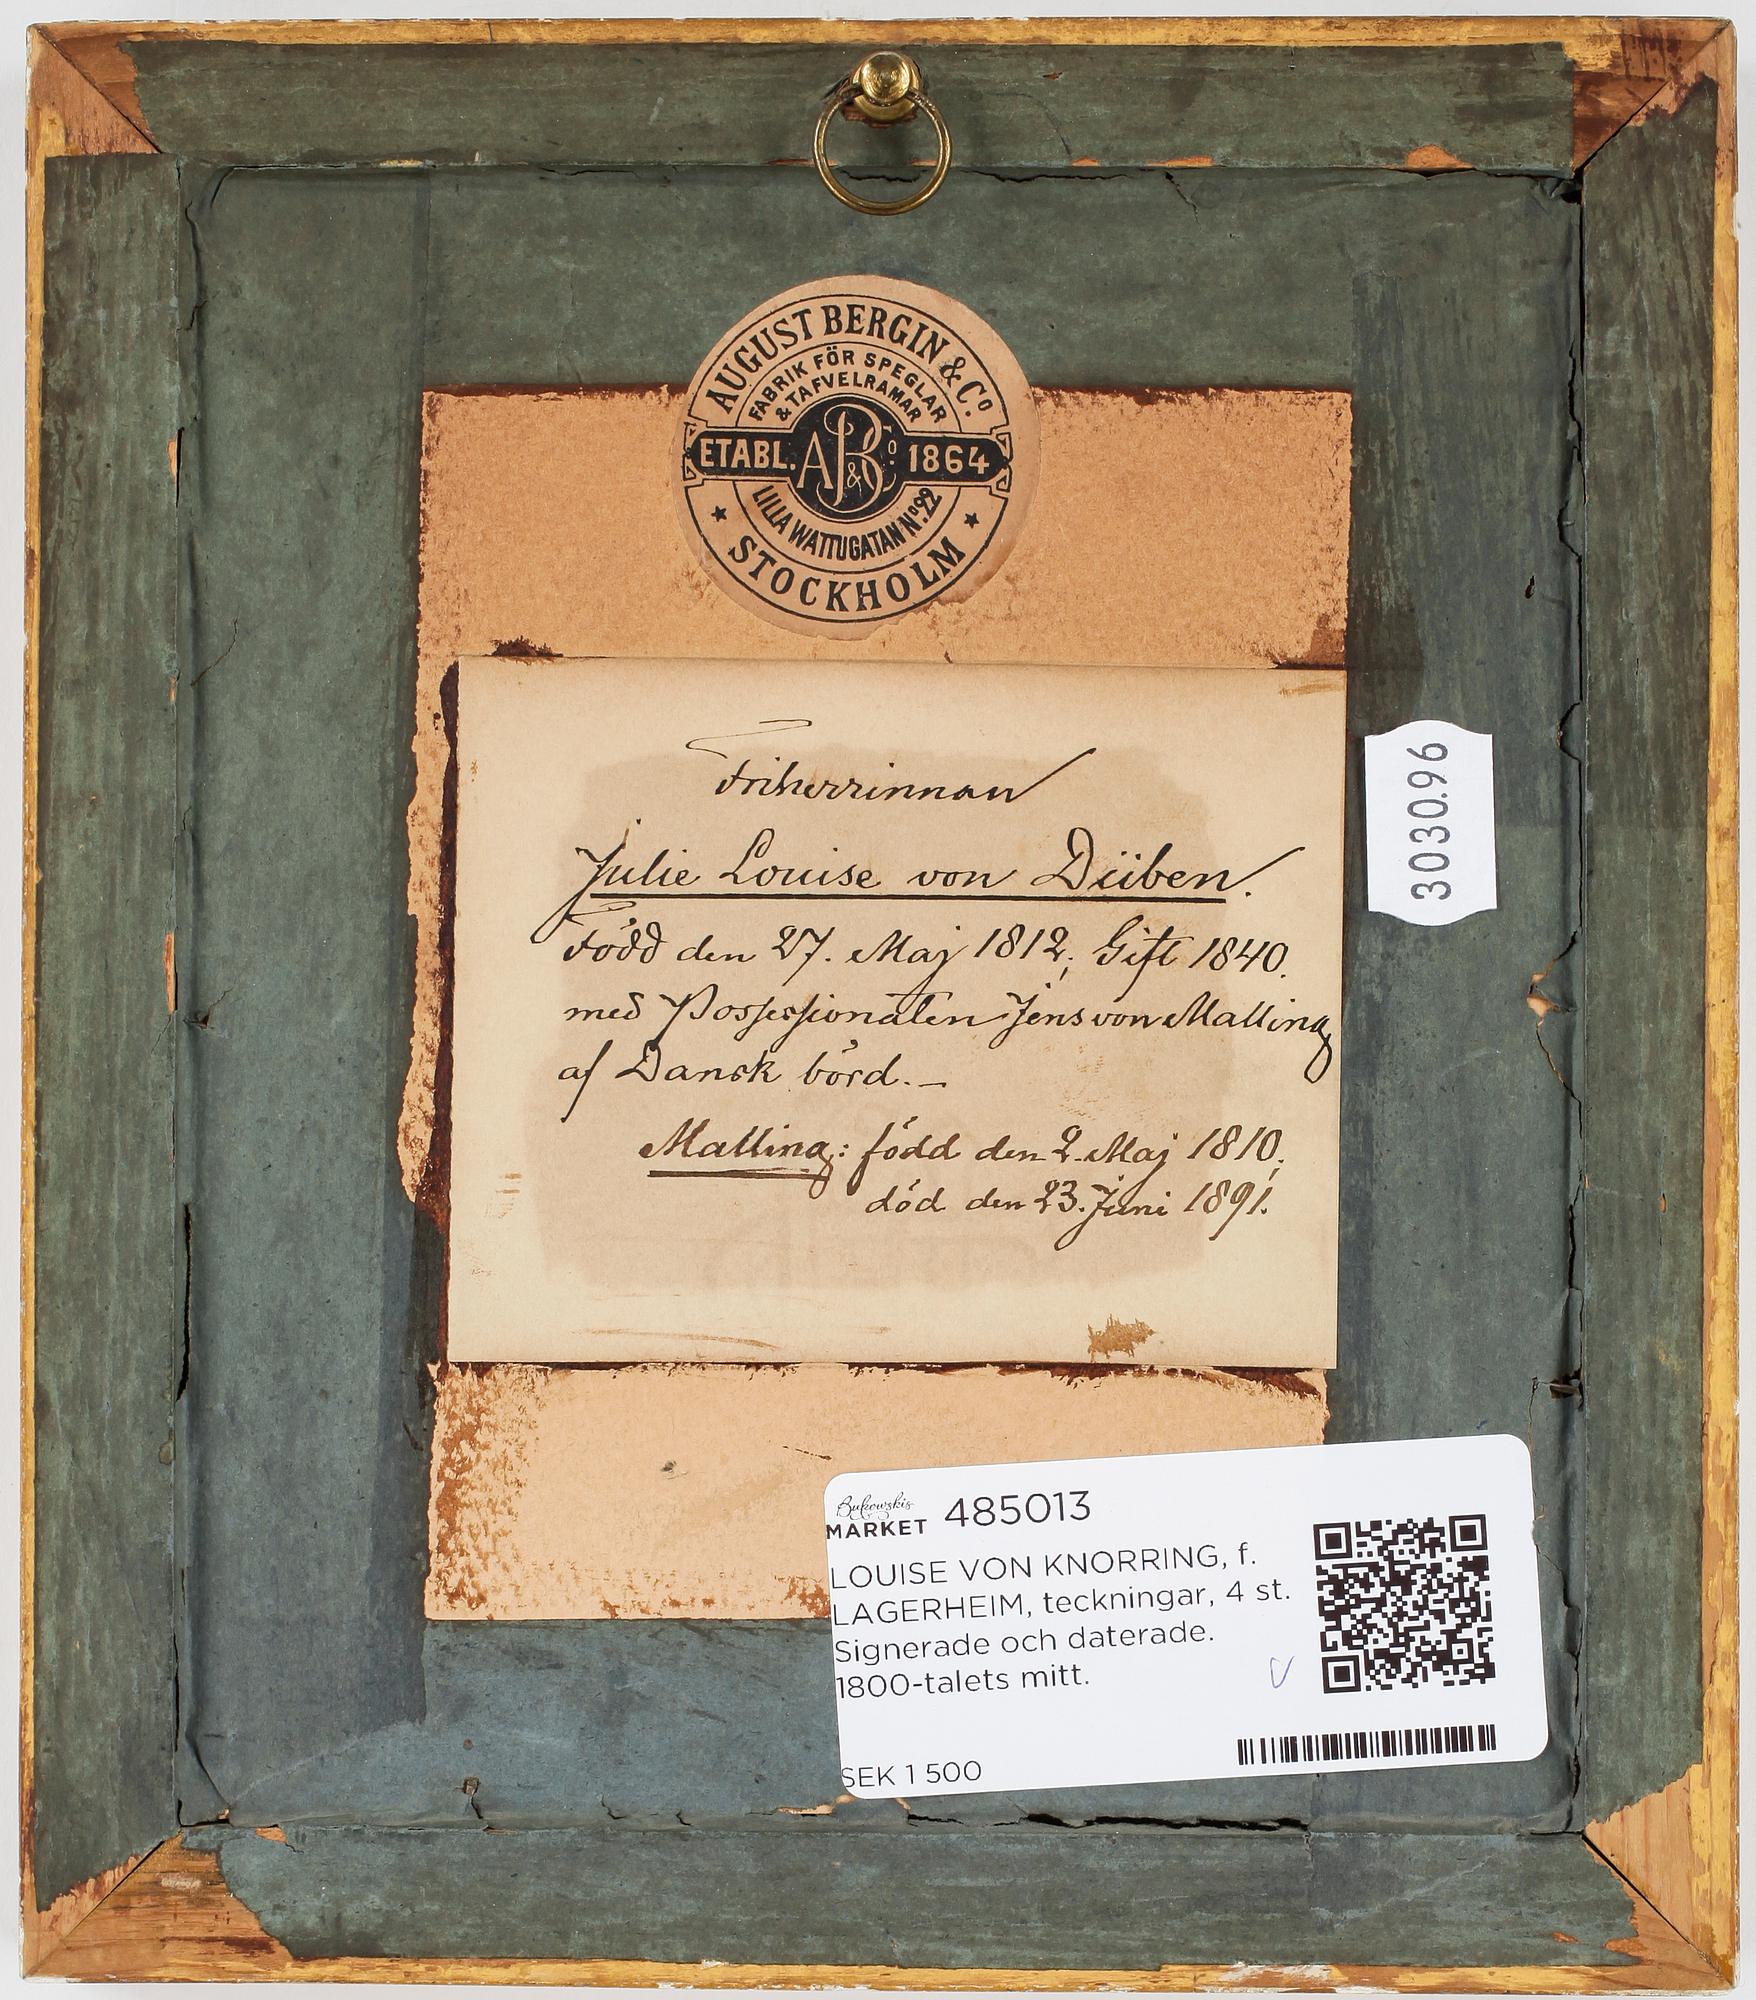 AUGUST BERGIN & Co.
FABRIK FÖR SPEGLAR
& TAFVELRAMAR
ETABL. AB&Co 1864
LILLA WATTUGATAN No. 22
STOCKHOLM
Friherrinnan
Julie Louise von Düben.
Född den 27. Maj 1812; Gift 1840.
med Possessionaten Jens von Malling
af Dansk börd. –
Malling: född den 2. Maj 1810;
död den 23. Juni 1891.
3030.96
Bukowskis
MARKET 485013
LOUISE VON KNORRING, f.
LAGERHEIM, teckningar, 4 st.
Signerade och daterade.
1800-talets mitt.
SEK 1 500